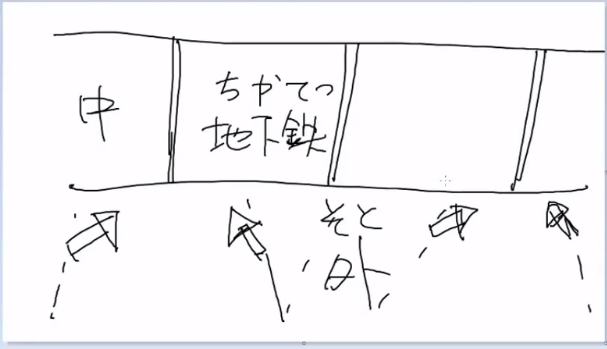 中
ちかてつ
地下鉄
そと
外